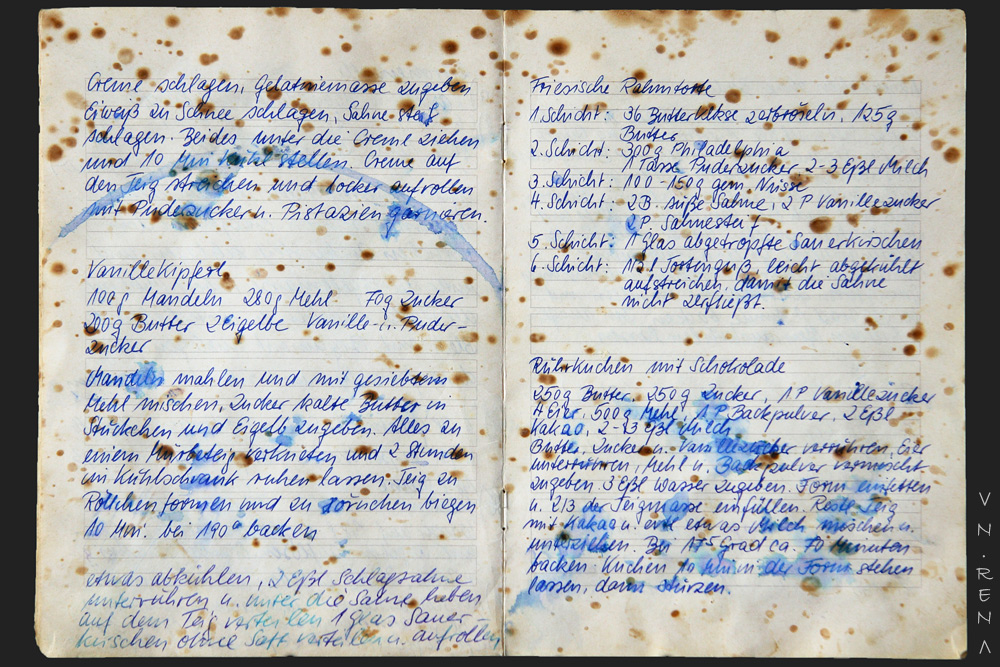 Creme schlagen, Gelatinemasse zugeben
Eiweiß zu Schnee schlagen, Sahne steif
schlagen. Beides unter die Creme ziehen
und 10 Min kühl stellen. Creme auf
den Teig streichen und locker aufrollen
mit Puderzucker u. Pistazien garnieren.
Vanillekipferl
100g Mandeln 280g Mehl 70g Zucker
200g Butter 2 Eigelbe Vanille- u. Puder-
zucker
Mandeln mahlen und mit gesiebtem
Mehl mischen, Zucker kalte Butter in
Stückchen und Eigelb zugeben. Alles zu
einem Mürbeteig verkneten und 2 Stunden
im Kühlschrank ruhen lassen. Teig zu
Röllchen formen und zu Hörnchen biegen
10 Min. bei 190° backen
etwas abkühlen, 2 Eßl Schlagsahne
unterrühren u. unter die Sahne heben
auf dem Teig verteilen 1 Glas Sauer-
kirschen ohne Saft verteilen u. aufrollen
Friesische Rahmtorte
1. Schicht: 36 Butterkekse zerbröseln, 125g
Butter
2. Schicht: 300g Philadelphia
1 Tasse Puderzucker 2-3 Eßl Milch
3. Schicht: 100-150g gem Nüsse
4. Schicht: 2 B. süße Sahne, 2 P Vanillezucker
2 P. Sahnesteif
5. Schicht: 1 Glas abgetropfte Sauerkirschen
6. Schicht: 1/2 l Tortenguß, leicht abgekühlt
aufstreichen, damit die Sahne
nicht zerfließt.
Rührkuchen mit Schokolade
250g Butter, 250g Zucker, 1 P Vanillezucker
4 Eier, 500g Mehl, 1 P Backpulver, 2 Eßl
Kakao, 2-3 Eßl Milch
Butter, Zucker u. Vanillezucker verrühren, Eier
unterrühren, Mehl u. Backpulver vermischt
zugeben 3 Eßl Wasser zugeben. Form einfetten
u. 2/3 der Teigmasse einfüllen. Restl. Teig
mit Kakao u. evtl. etwas Milch mischen u.
unterziehen. Bei 175 Grad ca. 70 Minuten
backen. Kuchen 10 in der Form stehen
lassen, dann stürzen.
VN·RENA